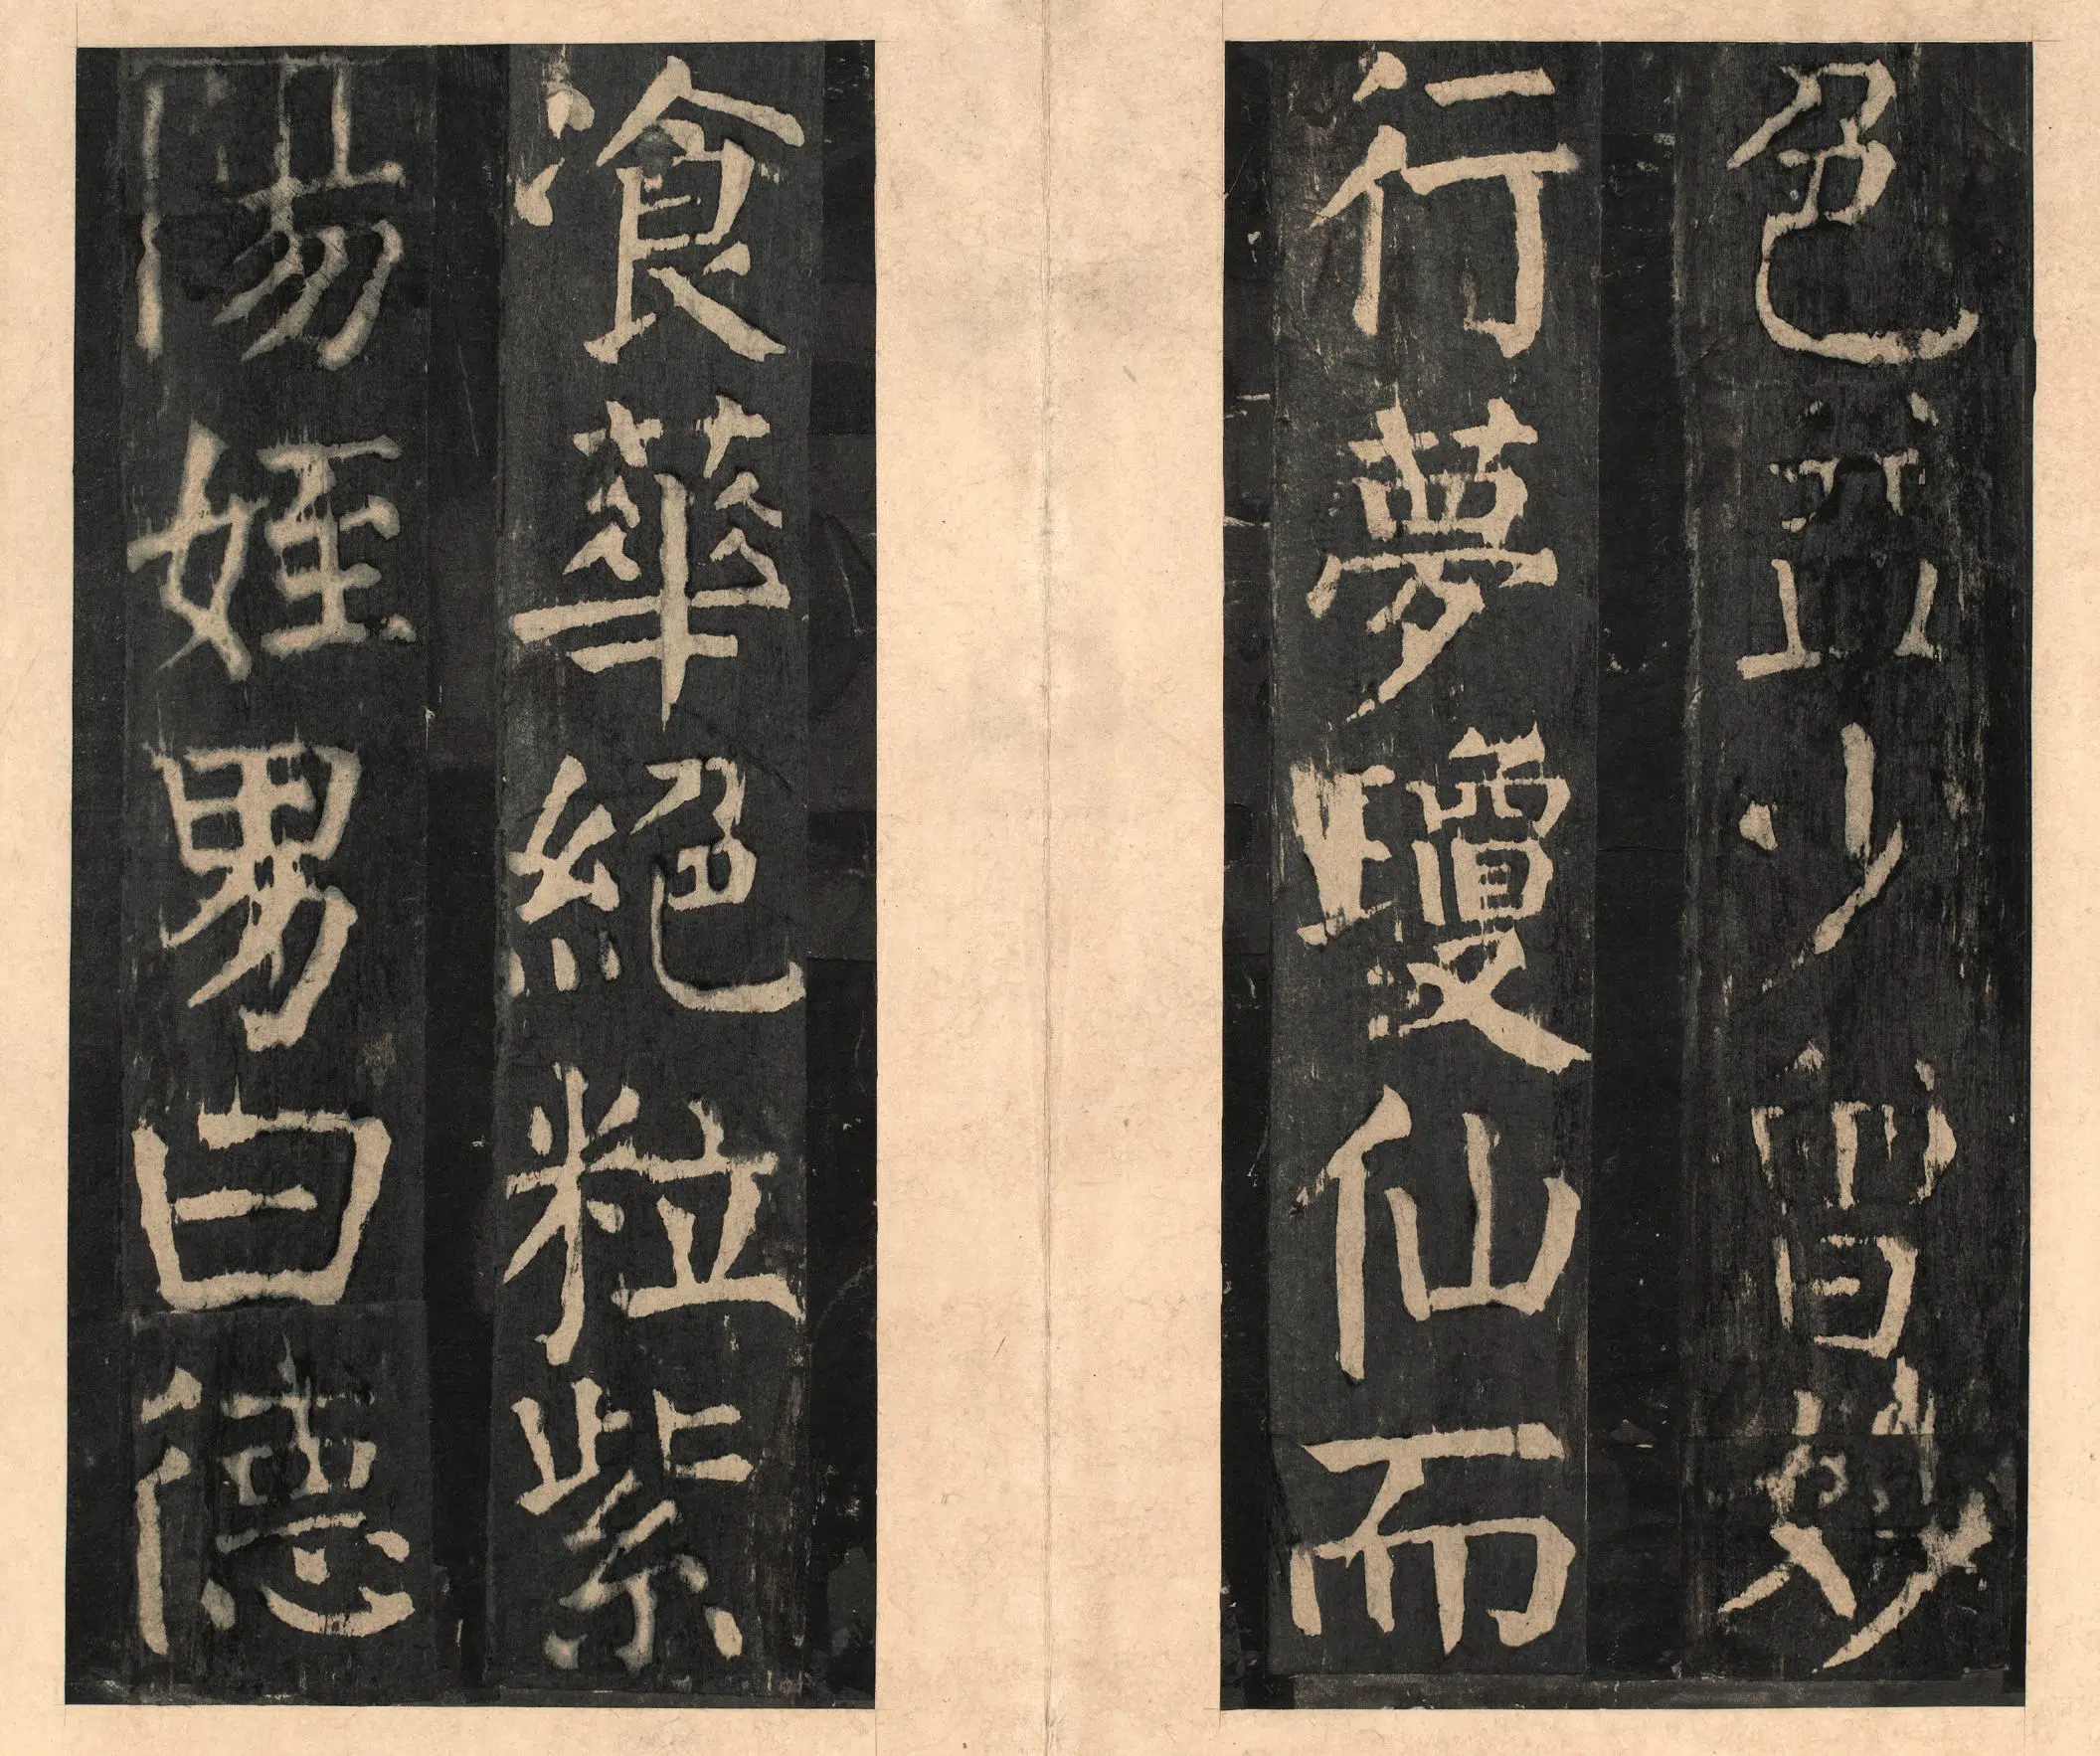 色益少曾妙
行夢瓊仙而
飡華絕粒紫
陽姪男曰德